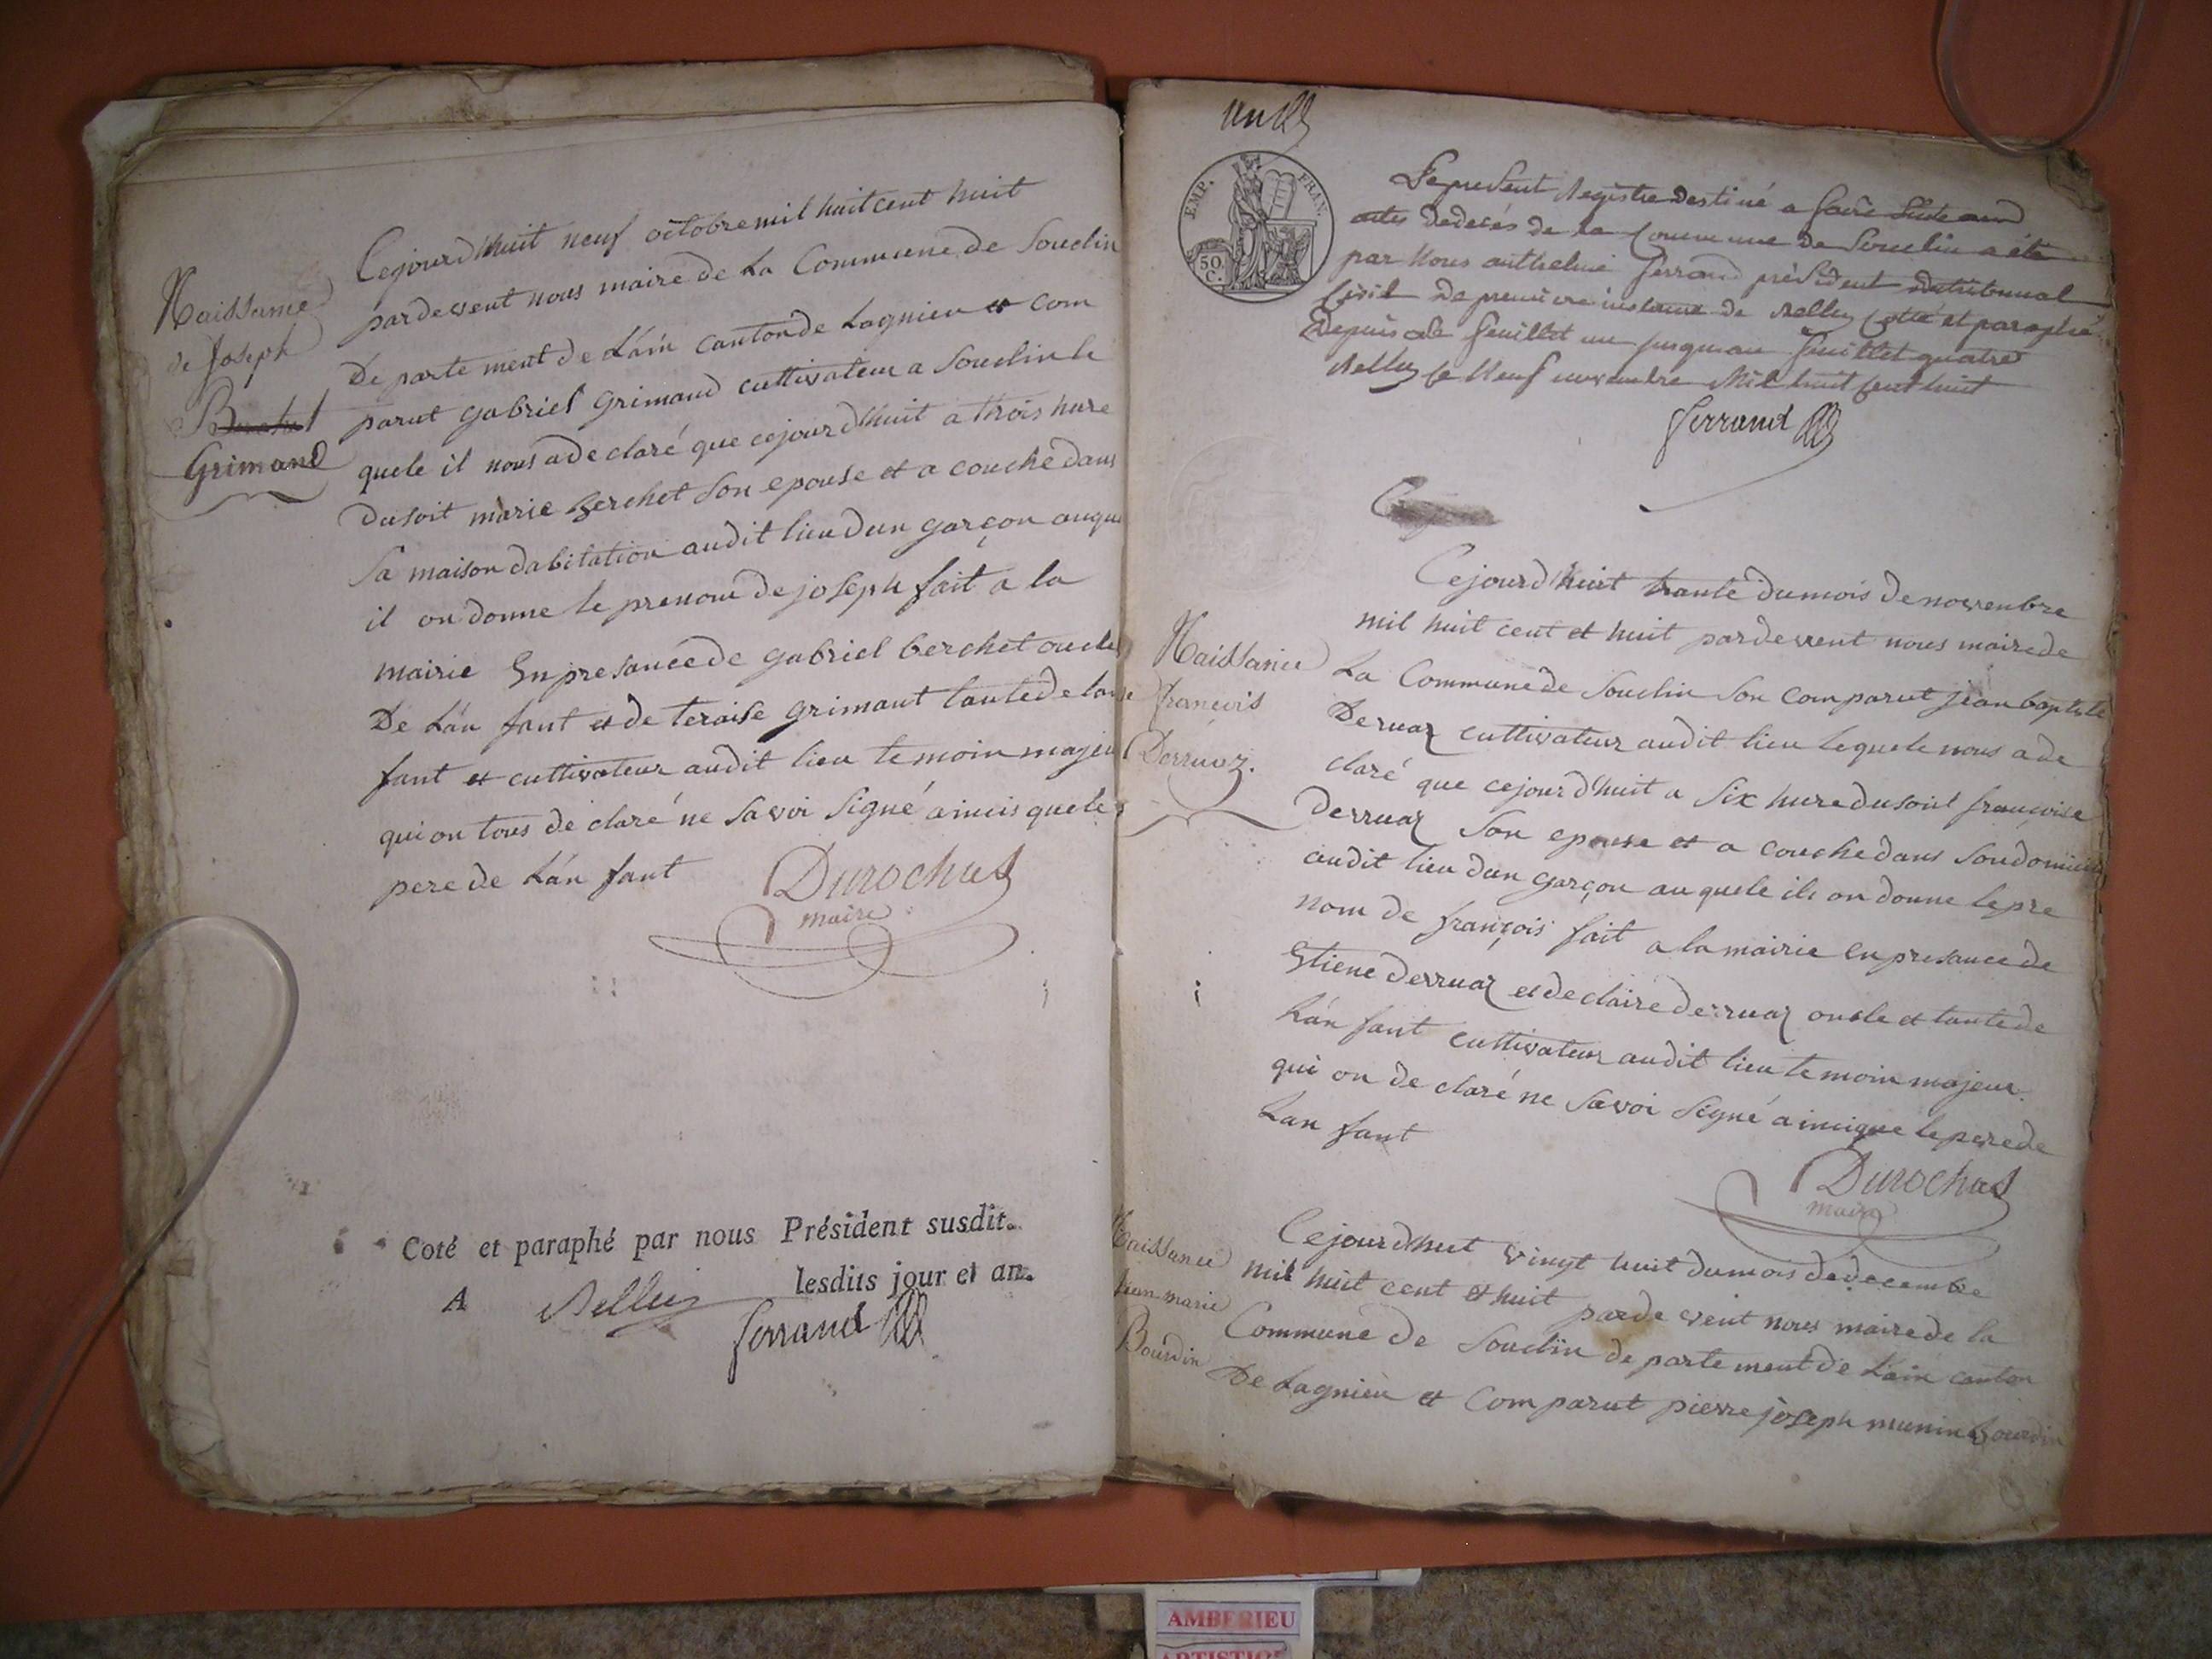 Naissance
de Joseph
Berchet
Grimand
Cejourdhuit neuf octobre mil huit cent huit
pardevent nous maire de La Commune de Souclin
De parte ment de Láin canton de Lagnieu et com
parut gabriel Grimand cultivateur a Souclin le
quele il nous a de claré que cejourdhuit a trois hure
du soit marie Berchet Son epouse et a couché dans
Sa maison dabitation audit lieu dun garçon auque
il on donne le prenom de joseph fait a la
mairie En presance de gabriel berchet oncle
De Lán fant et de teraise grimant tante de lan
fant et cultivateur audit lieu temoin majeu
qui on tous de claré ne Savoi Signé aincis que le
pere de Lán fant
Durochat
maire
Coté et paraphé par nous Président susdit.
lesdits jour et an.
A Belley
Ferrand
un
EMP. FRAN.
50.
C.
Le présent Registre destiné a faire Suite aux
actes de décés de la Commune de Souclin a été
par Nous anthelme ferrand président du tribunal
Civil de premiere instance de Belley Cotté et paraphé
Depuis le feuillet un jusquau feuillet quatre
Belley le Neuf novembre Mil huit Cent huit
Ferrand
Naissance
françois
Derruaz.
Cejourdhuit trante du mois de novenbre
mil huit cent et huit pardevent nous maire de
La Commune de Souclin Son comparut jean baptiste
Deruaz cultivateur audit lieu lequele nous a de
claré que cejourdhuit a Six hure du soit françoise
Derruaz Son epouse et a couche dans Son domicile
audit lieu dun garçon au quele ils on donne le pre
nom de françois fait a la mairie en presance de
Etiene Derruaz et de claire Derruaz oncle et tante de
Lán fant cultivateur audit lieu temoin majeur.
qui on de claré ne Savoi Signé ainci que le pere de
Lan fant
Durochat
maire
Naissance
jean marie
Bourdin
Cejourdhuet vingt huit du mois de decembre
mil huit cent et huit parde vent nous maire de la
Commune de Souclin de parte ment de Láin canton
De Lagnieu et Com parut pierre joseph munin Bourdin
AMBERIEU
ARTISTIQUE